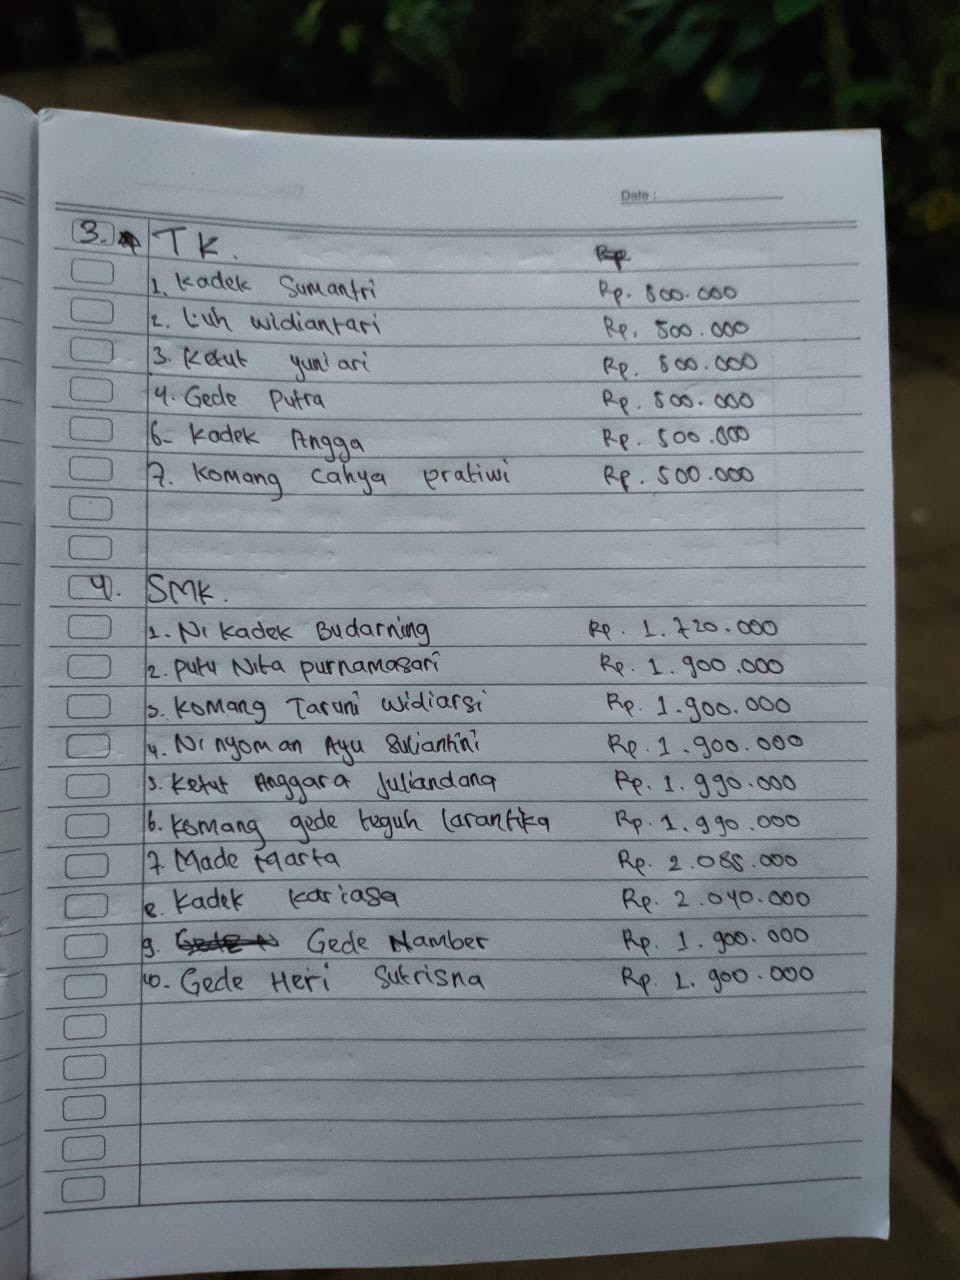 Date :
3. TK.
1. Kadek Sumantri Rp. 500.000
2. Luh Widiantari Rp. 500.000
3. Ketut yuniari Rp. 500.000
4. Gede Putra Rp. 500.000
6- Kadek Angga Rp. 500.000
7. Komang Cahya pratiwi Rp. 500.000
4. SMK.
1. Ni Kadek Budarning Rp. 1.720.000
2. putu Nita purnamasari Rp. 1.900.000
3. Komang Taruni Widiarsi Rp. 1.900.000
4. Ni nyoman Ayu Suliantini Rp. 1.900.000
5. Ketut Anggara Juliandana Rp. 1.990.000
6. Komang gede teguh larantika Rp. 1.990.000
7. Made Marta Rp. 2.085.000
8. Kadek Kariasa Rp. 2.040.000
9. Gede Namber Rp. 1.900.000
10. Gede Heri Sutrisna Rp. 1.900.000